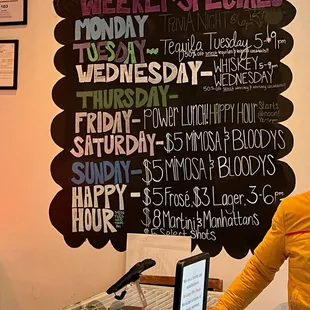 WEEKLY SPECIALS
MONDAY TRIVIA NIGHT
TUESDAY Tequila Tuesday 5-9pm
WEDNESDAY- WHISKEY 5-9pm
WEDNESDAY
THURSDAY-
FRIDAY- POWER LUNCH! HAPPY HOUR Starts
SATURDAY- $5 MIMOSA & BLOODYS
SUNDAY- $5 MIMOSA & BLOODYS
HAPPY - $5 Frosé, $3 Lager, 3-6pm
HOUR- $8 Martini & Manhattans
$5 Select Shots